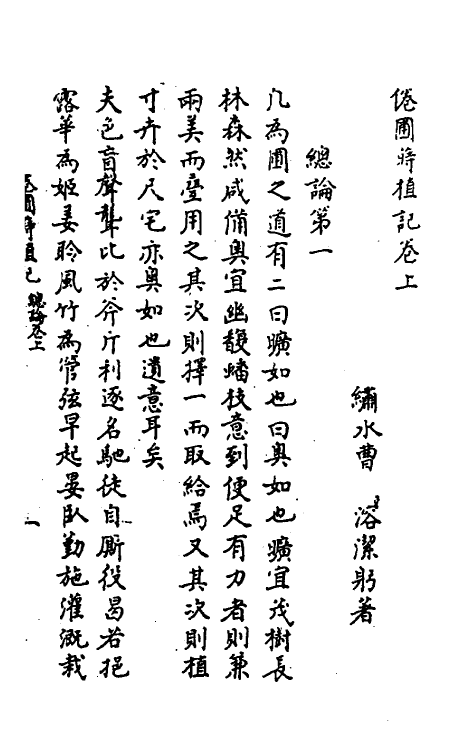 倦圃蒔植記卷上
繡水曹溶潔躬著
總論第一
凡為圃之道有二曰曠如也曰奧如也曠宜茂樹長
林森然咸備奧宜幽馥蟠枝意到便足有力者則兼
兩美而疊用之其次則擇一而取給焉又其次則植
寸卉於尺宅亦奧如也遺意耳矣
夫色盲聲聾比於斧斤利逐名馳徒自厮役曷若挹
露華為姬姜聆風竹為管弦早起晏臥勤施灌溉栽
倦圃蒔植記 總論卷上 一